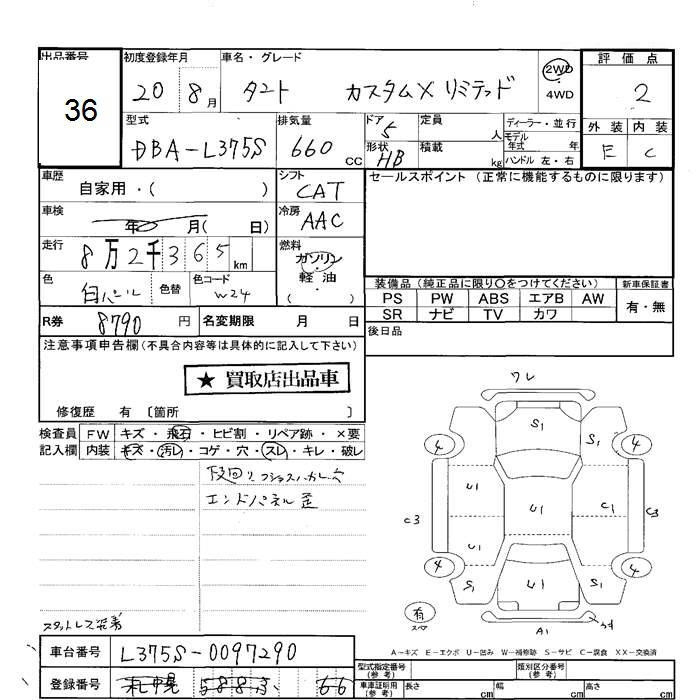 出品番号 初度登録年月 車名・グレード 評価点
36 20 8月 タント カスタムX リミテッド 2WD 4WD 2
型式 排気量 ドア 定員 ディーラー・並行 外装 内装
DBA-L375S 660 cc 5 人 モデル年式 年 E C
形状 HB 積載 kg ハンドル 左・右
車歴 自家用・( ) シフト CAT セールスポイント (正常に機能するものに限ります)
車検 年 月( 日) 冷房 AAC
走行 8万2千365km 燃料 ガソリン・軽油 ( )
色 白パール 色替 色コード W24
装備品 (純正品に限り○をつけてください) 新車保証書
PS PW ABS エアB AW 有・無
SR ナビ TV カワ
R券 8790円 名変期限 月 日 後日品
注意事項申告欄(不具合内容等は具体的に記入して下さい)
★ 買取店出品車
修復歴 有 〔箇所 〕
検査員記入欄 FW キズ・飛石・ヒビ割・リペア跡・×要
内装 キズ・汚レ・コゲ・穴・スレ・キレ・破レ
エンドパネル歪
ワレ
S1 S1
4 4
U1 U1 C1
C3 C3
U1
4 4
S1 U1 S1
有 スペア
A1
スタットレス装着
A-キズ E-エクボ U-凹み W-補修跡 S-サビ C-腐食 XX-交換済
車台番号 L375S-0097290
登録番号 札幌 588 66
型式指定番号(参考) 類別区分番号(参考)
車庫証明用(参考) 長さ cm 幅 cm 高さ cm